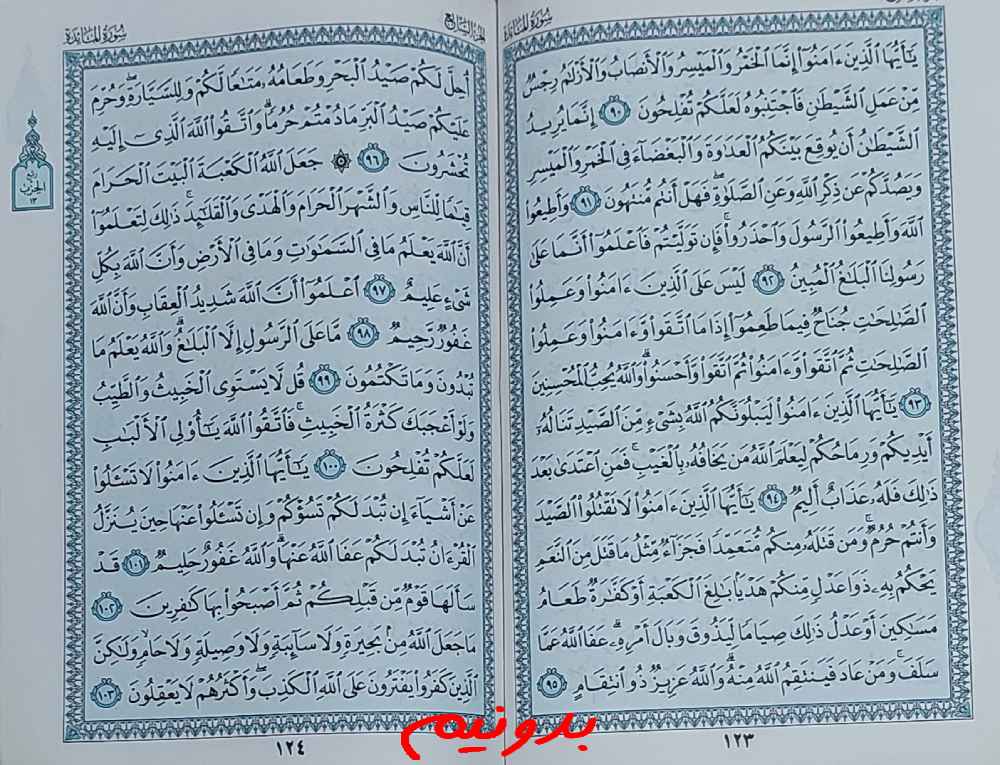 سُورَةُ المَائـِدَة
يَـٰٓأَيُّهَا ٱلَّذِينَ ءَامَنُوٓا۟ إِنَّمَا ٱلْخَمْرُ وَٱلْمَيْسِرُ وَٱلْأَنصَابُ وَٱلْأَزْلَـٰمُ رِجْسٌ
مِّنْ عَمَلِ ٱلشَّيْطَـٰنِ فَٱجْتَنِبُوهُ لَعَلَّكُمْ تُفْلِحُونَ ٩٠ إِنَّمَا يُرِيدُ
ٱلشَّيْطَـٰنُ أَن يُوقِعَ بَيْنَكُمُ ٱلْعَدَٰوَةَ وَٱلْبَغْضَآءَ فِى ٱلْخَمْرِ وَٱلْمَيْسِرِ
وَيَصُدَّكُمْ عَن ذِكْرِ ٱللَّهِ وَعَنِ ٱلصَّلَوٰةِ ۖ فَهَلْ أَنتُم مُّنتَهُونَ ٩١ وَأَطِيعُوا۟
ٱللَّهَ وَأَطِيعُوا۟ ٱلرَّسُولَ وَٱحْذَرُوا۟ ۚ فَإِن تَوَلَّيْتُمْ فَٱعْلَمُوٓا۟ أَنَّمَا عَلَىٰ
رَسُولِنَا ٱلْبَلَـٰغُ ٱلْمُبِينُ ٩٢ لَيْسَ عَلَى ٱلَّذِينَ ءَامَنُوا۟ وَعَمِلُوا۟
ٱلصَّـٰلِحَـٰتِ جُنَاحٌ فِيمَا طَعِمُوٓا۟ إِذَا مَا ٱتَّقَوا۟ وَّءَامَنُوا۟ وَعَمِلُوا۟
ٱلصَّـٰلِحَـٰتِ ثُمَّ ٱتَّقَوا۟ وَّءَامَنُوا۟ ثُمَّ ٱتَّقَوا۟ وَّأَحْسَنُوا۟ ۗ وَٱللَّهُ يُحِبُّ ٱلْمُحْسِنِينَ
٩٣ يَـٰٓأَيُّهَا ٱلَّذِينَ ءَامَنُوا۟ لَيَبْلُوَنَّكُمُ ٱللَّهُ بِشَىْءٍ مِّنَ ٱلصَّيْدِ تَنَالُهُۥٓ
أَيْدِيكُمْ وَرِمَاحُكُمْ لِيَعْلَمَ ٱللَّهُ مَن يَخَافُهُۥ بِٱلْغَيْبِ ۚ فَمَنِ ٱعْتَدَىٰ بَعْدَ
ذَٰلِكَ فَلَهُۥ عَذَابٌ أَلِيمٌ ٩٤ يَـٰٓأَيُّهَا ٱلَّذِينَ ءَامَنُوا۟ لَا تَقْتُلُوا۟ ٱلصَّيْدَ
وَأَنتُمْ حُرُمٌ ۚ وَمَن قَتَلَهُۥ مِنكُم مُّتَعَمِّدًا فَجَزَآءٌ مِّثْلُ مَا قَتَلَ مِنَ ٱلنَّعَمِ
يَحْكُمُ بِهِۦ ذَوَا عَدْلٍ مِّنكُمْ هَدْيًۢا بَـٰلِغَ ٱلْكَعْبَةِ أَوْ كَفَّـٰرَةٌ طَعَامُ
مَسَـٰكِينَ أَوْ عَدْلُ ذَٰلِكَ صِيَامًا لِّيَذُوقَ وَبَالَ أَمْرِهِۦ ۗ عَفَا ٱللَّهُ عَمَّا
سَلَفَ ۚ وَمَنْ عَادَ فَيَنتَقِمُ ٱللَّهُ مِنْهُ ۗ وَٱللَّهُ عَزِيزٌ ذُو ٱنتِقَامٍ ٩٥
١٢٣
الجُزْءُ السَّابِع
سُورَةُ المَائـِدَة
أُحِلَّ لَكُمْ صَيْدُ ٱلْبَحْرِ وَطَعَامُهُۥ مَتَـٰعًا لَّكُمْ وَلِلسَّيَّارَةِ ۖ وَحُرِّمَ
عَلَيْكُمْ صَيْدُ ٱلْبَرِّ مَا دُمْتُمْ حُرُمًا ۗ وَٱتَّقُوا۟ ٱللَّهَ ٱلَّذِىٓ إِلَيْهِ
تُحْشَرُونَ ٩٦ ۞ جَعَلَ ٱللَّهُ ٱلْكَعْبَةَ ٱلْبَيْتَ ٱلْحَرَامَ
قِيَـٰمًا لِّلنَّاسِ وَٱلشَّهْرَ ٱلْحَرَامَ وَٱلْهَدْىَ وَٱلْقَلَـٰٓئِدَ ۚ ذَٰلِكَ لِتَعْلَمُوٓا۟
أَنَّ ٱللَّهَ يَعْلَمُ مَا فِى ٱلسَّمَـٰوَٰتِ وَمَا فِى ٱلْأَرْضِ وَأَنَّ ٱللَّهَ بِكُلِّ
شَىْءٍ عَلِيمٌ ٩٧ ٱعْلَمُوٓا۟ أَنَّ ٱللَّهَ شَدِيدُ ٱلْعِقَابِ وَأَنَّ ٱللَّهَ
غَفُورٌ رَّحِيمٌ ٩٨ مَّا عَلَى ٱلرَّسُولِ إِلَّا ٱلْبَلَـٰغُ ۗ وَٱللَّهُ يَعْلَمُ مَا
تُبْدُونَ وَمَا تَكْتُمُونَ ٩٩ قُل لَّا يَسْتَوِى ٱلْخَبِيثُ وَٱلطَّيِّبُ
وَلَوْ أَعْجَبَكَ كَثْرَةُ ٱلْخَبِيثِ ۚ فَٱتَّقُوا۟ ٱللَّهَ يَـٰٓأُو۟لِى ٱلْأَلْبَـٰبِ
لَعَلَّكُمْ تُفْلِحُونَ ١٠٠ يَـٰٓأَيُّهَا ٱلَّذِينَ ءَامَنُوا۟ لَا تَسْـَٔلُوا۟
عَنْ أَشْيَآءَ إِن تُبْدَ لَكُمْ تَسُؤْكُمْ وَإِن تَسْـَٔلُوا۟ عَنْهَا حِينَ يُنَزَّلُ
ٱلْقُرْءَانُ تُبْدَ لَكُمْ عَفَا ٱللَّهُ عَنْهَا ۗ وَٱللَّهُ غَفُورٌ حَلِيمٌ ١٠١ قَدْ
سَأَلَهَا قَوْمٌ مِّن قَبْلِكُمْ ثُمَّ أَصْبَحُوا۟ بِهَا كَـٰفِرِينَ ١٠٢
مَا جَعَلَ ٱللَّهُ مِنۢ بَحِيرَةٍ وَلَا سَآئِبَةٍ وَلَا وَصِيلَةٍ وَلَا حَامٍ ۙ وَلَـٰكِنَّ
ٱلَّذِينَ كَفَرُوا۟ يَفْتَرُونَ عَلَى ٱللَّهِ ٱلْكَذِبَ ۖ وَأَكْثَرُهُمْ لَا يَعْقِلُونَ ١٠٣
١٢٤
رُبع
الحِزْب
١٣
بدونیم